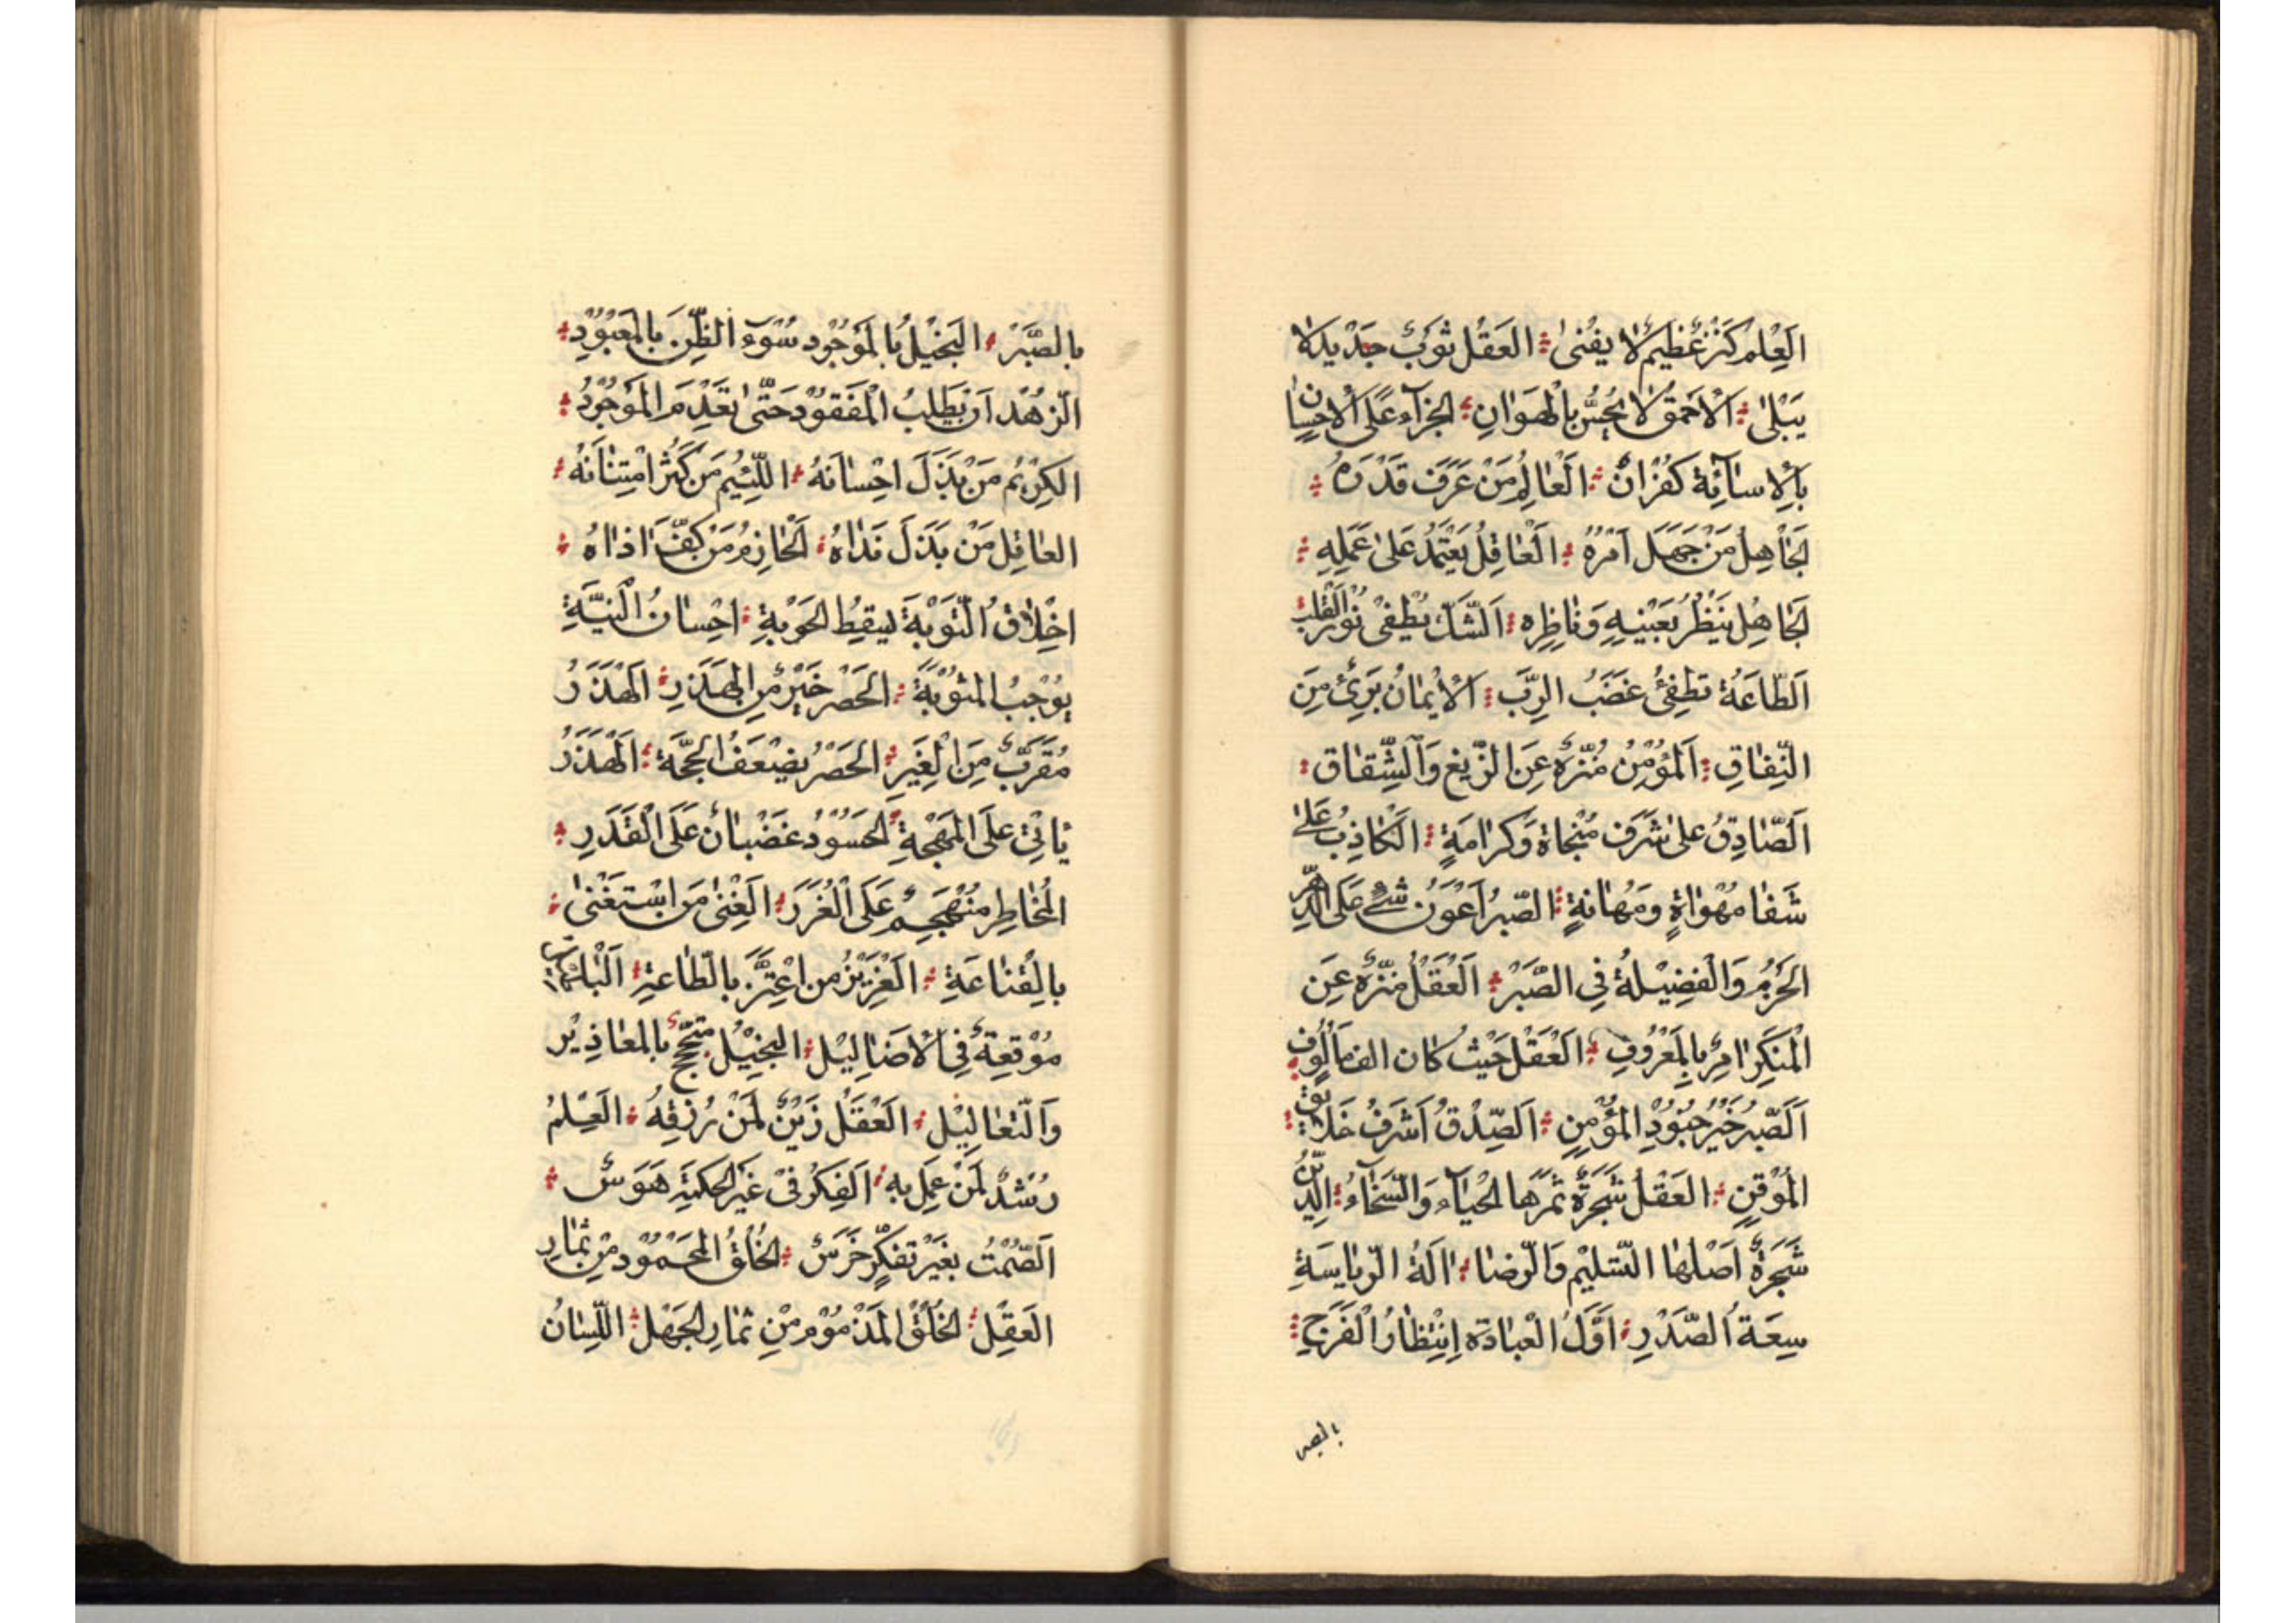 اَلعِلْمُ كَنْزٌ عَظيمٌ لا يَفْنىٰ العَقْلُ ثَوبٌ جَدْيدٌ لا
يَبْلىٰ اَلاَحْمَقُ لا يُحِسُّ بِالْهَوَانِ الجَزآءُ عَلَى الاِحْسانِ
بِالْاِسآئَةِ كُفْرَانٌ اَلْعٰالِمُ مَنْ عَرَفَ قَدْرَهُ
الجَاهِلُ مَنْ جَهَلَ اَمْرَهُ اَلْعٰاقِلُ يَعْتَمِدُ عَلىٰ عَمَلِهِ
الجَاهِلُ يَنْظُرُ بِعَيْنِهِ وَنٰاظِرِه اَلشَّكُ يُطْفِىْ نُوْرَ الْقَلْبِ
اَلطّاعَةُ تُطْفِئُ غَضَبَ الرَّبِّ اَلْاِيْمٰانُ بَرِئٌ مِنَ
النِّفٰاقِ اَلمُؤْمِنُ مُنَزَّهٌ عَنِ الزَّيْغِ وَالشِّقٰاقِ
اَلصّٰادِقُ عَلىٰ شَرَفِ مَنْجٰاةٍ وَكَرامَةٍ اَلكٰاذِبُ عَلىٰ
شَفٰا مَهْوٰاةٍ وَمَهٰانَةٍ الصَّبرُ اَعْوَنُ شَئٍ عَلَى الدَّهْرِ
الحَزْمُ وَالفَضِيْلَةُ فِى الصَّبْرِ اَلعَقْلُ مُنَزَّهٌ عَنِ
المُنْكَرِ اٰمِرٌ بِالمَعْرُوفِ اَلعَقْلُ حَيْثُ كانَ اِلْفٌ مَأْلُوفٌ
اَلصَّبْرُ خَيْرُ جُنُوْدِ المُؤْمِنِ اَلصِّدْقُ اَشْرَفُ خَلاٰئِقِ
المُوْقِنِ العَقْلُ شَجَرَةٌ ثَمَرُها الحَيٰآءُ وَالسَّخٰآءُ الدِّيْنُ
شَجَرَةٌ اَصْلُهٰا التَّسْليْمُ وَالرِّضٰا اٰلَةُ الرِّيٰاسَةِ
سِعَةُ الصَّدْرِ اَوَّلُ العِبٰادَةِ اِنْتِظٰارُ الْفَرَجِ
بالصبر
بِالصَّبْرِ البَخيْلُ بِالمَوْجُوْدِ سُوْءُ الظَّنِّ بِالمَعْبُوْدِ
الزُّهْدُ اَنْ يَطْلُبَ المَفْقُوْدَ حَتّىٰ يَعْدِمَ المَوْجُوْدُ
الكَرِيْمُ مَنْ بَذَلَ اِحْسٰانَهُ اللَّئِيْمُ مَنْ كَثُرَ امْتِنٰانَهُ
العٰاقِلُ مَنْ بَذَلَ نَدٰاهُ اَلحٰازِمُ مَنْ كَفَّ اَذٰاهُ
اِخْلاٰقُ التَّوْبَةَ يُسْقِطُ الحَوْبَةِ اِحْسٰانُ النِيَّةِ
يُوْجِبُ المَثُوْبَةَ الحَصْرُ خَيْرٌ مِنَ الهَذَرِ الهَذَرُ
مُقَرِّبٌ مِنَ الْغِيَرِ الحَصْرُ يُضْعِفُ الحُجَّةَ اَلهَذَرُ
يٰاتِى عَلَى المُهْجَةِ الحَسُوْدُ غَضْبٰانٌ عَلَى القَدَرِ
المُخٰاطِرُ مُتَهَجِّمٌ عَلَى الْغُرَرِ الغِنٰى مَنِ اسْتَغْنىٰ
بِالْقَنٰاعَةِ العَزِيْزُ مَنِ اعْتَزَّ بِالطّاعَةِ اَلْبٰاطيل
مُوْقِعَةٌ فِى الاَضٰالِيْلِ البَخِيْلُ مُتَحَجِّجٌ بِالمَعٰاذِيْرِ
وَالتَّعٰالِيْلِ العَقْلُ زَيْنٌ لِمَنْ رُزِقَهُ العِلْمُ
رُشْدٌ لِمَنْ عَمِلَ بِهِ اَلفِكْرُ فىْ غَيْرِ الحِكْمَةِ هَوَسٌ
اَلصَّمْتُ بِغَيْرِ تَفَكُّرٍ خَرَسٌ الخُلْقُ المَحْمُوْدُ مِنْ ثِمٰارِ
العَقْلِ الخُلْقُ المَذْمُوْمُ مِنْ ثِمٰارِ الجَهْلِ اللِّسٰانُ